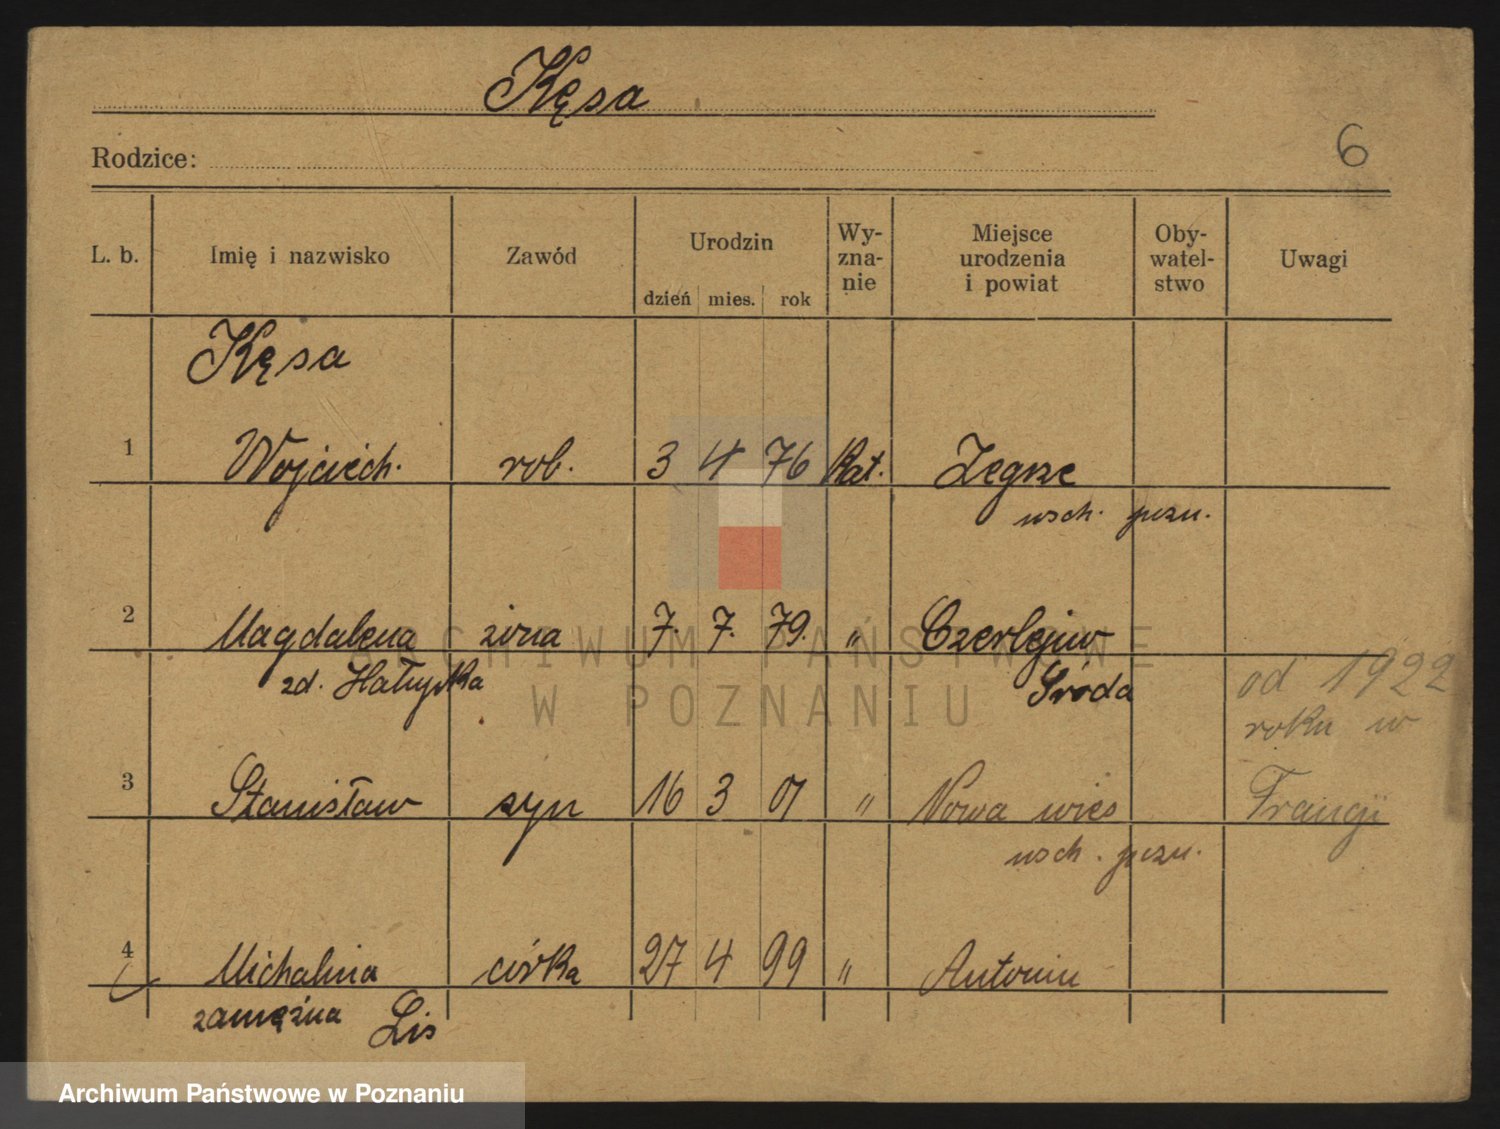 Kęsa
Rodzice:
6
L. b. Imię i nazwisko Zawód Urodzin dzień mies. rok Wy-zna-nie Miejsce urodzenia i powiat Oby-watel-stwo Uwagi
Kęsa
1 Wojciech. rob. 3 4 76 Kat. Zegrze
wsch. pozn.
2 Magdalena żona 7. 7. 79. " Czerlejno
zd. Środa od 1922
roku w
3 Stanisław syn 16 3 01 " Nowa wieś Francji
wsch. pozn.
4 Michalina córka 27 4 99 " Antonin
zamężna Lis
ARCHIWUM PAŃSTWOWE
W POZNANIU
Archiwum Państwowe w Poznaniu